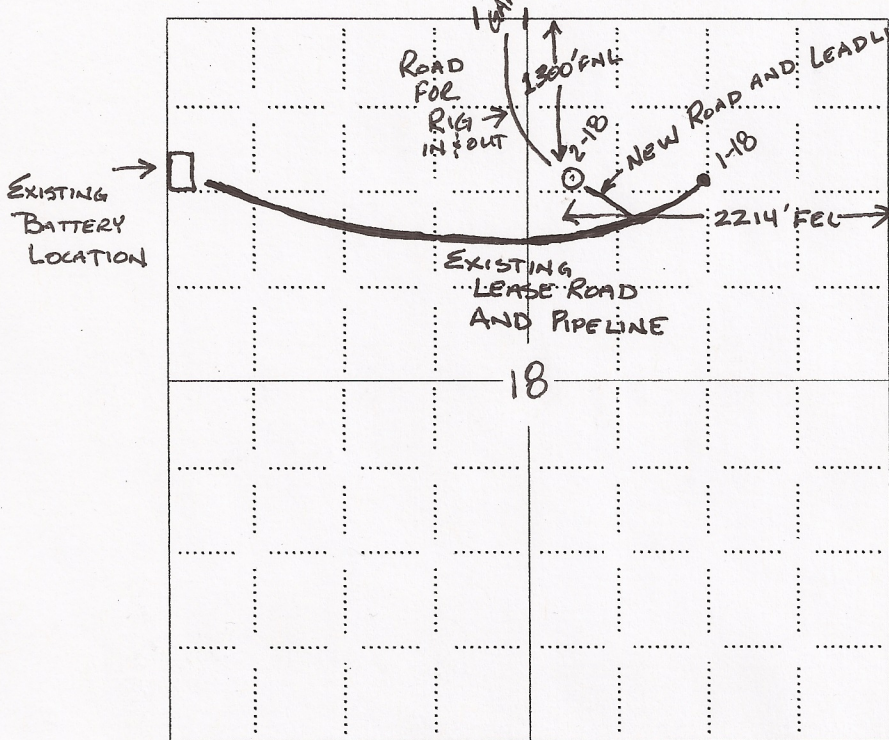 ROAD
FOR
RIG
IN & OUT
1300' FNL
2-18
NEW ROAD AND
1-18
2214' FEL
EXISTING
BATTERY
LOCATION
EXISTING
LEASE ROAD
AND PIPELINE
18